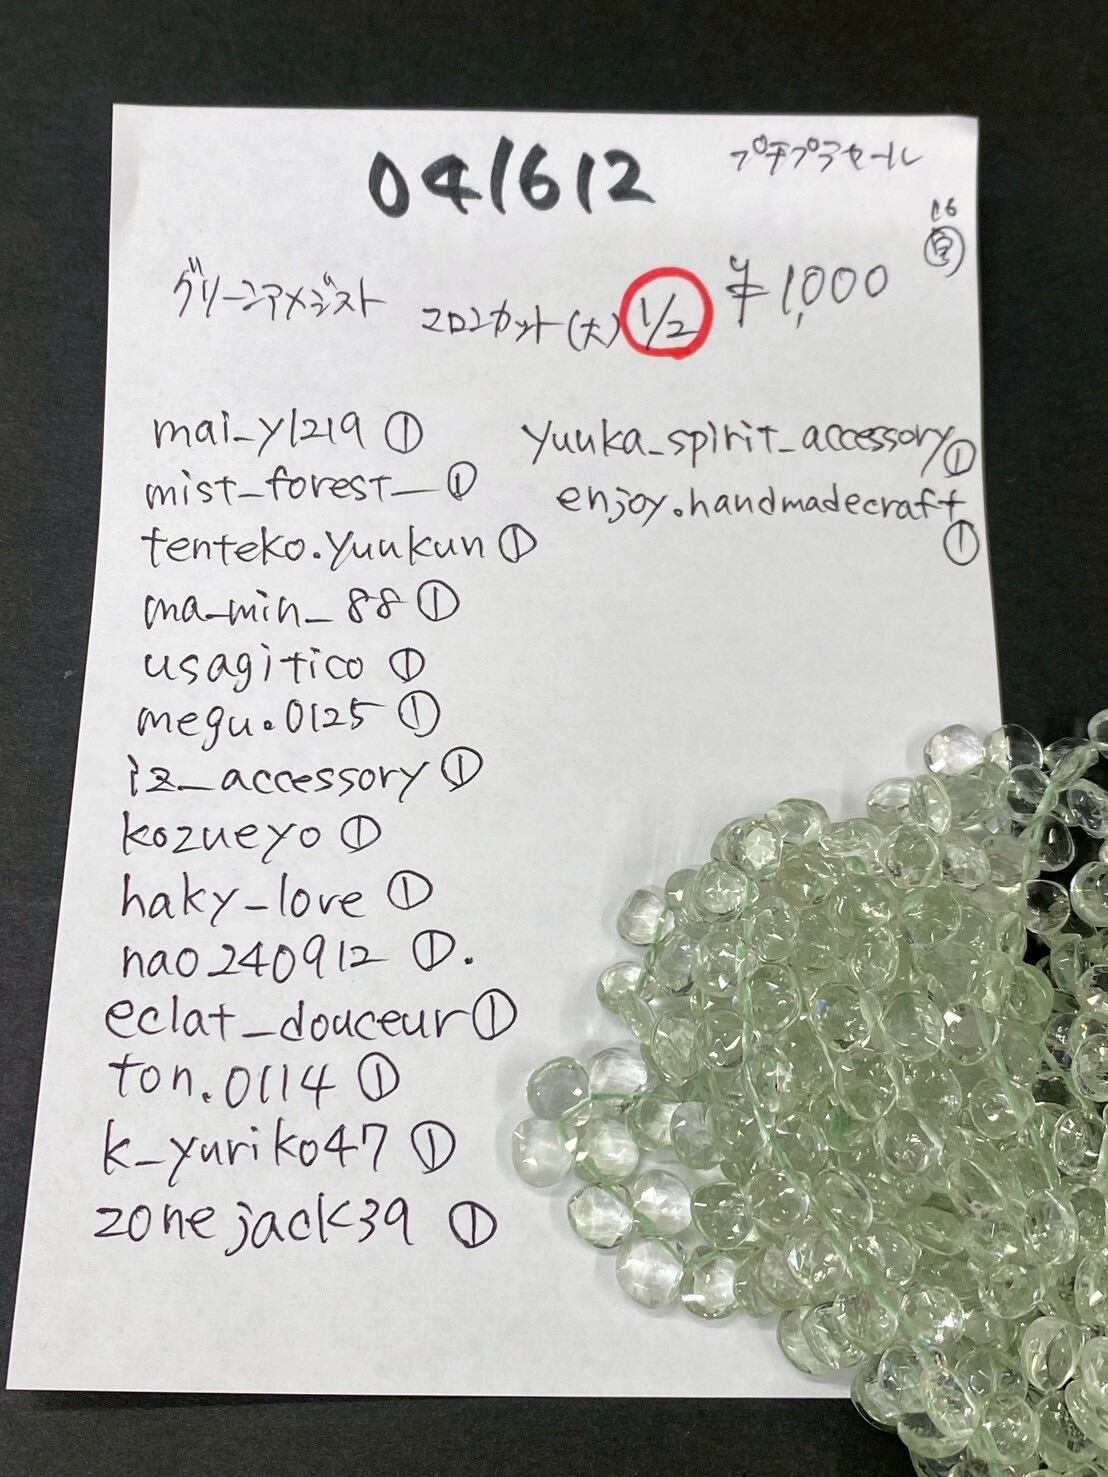 041612
プチプラセール
16
グリーンアメジスト
コロンカット(大) 1/2 ¥1,000
mai_y1219 ①
mist_forest_ ①
tenteko.yuukun ①
ma_min_88 ①
usagitico ①
megu.0125 ①
iz_accessory ①
kozueyo ①
haky_love ①
nao240912 ①.
eclat_douceur ①
ton.0114 ①
k_yuriko47 ①
zonejack39 ①
yuuka_spirit_accessory ①
enjoy.handmadecraft
①